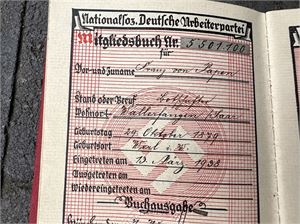 Nationalsoz. Deutsche Arbeiterpartei
Mitgliedsbuch Nr. 5501100
für
Vor- und Zuname Franz von Papen
Stand oder Beruf Botschafter
Wohnort Wallerfangen Saar
Geburtstag 29. Oktober 1879
Geburtsort Werl i. W.
Eingetreten am 13. März 1938
Ausgetreten am
Wiedereingetreten am
Buchausgabe